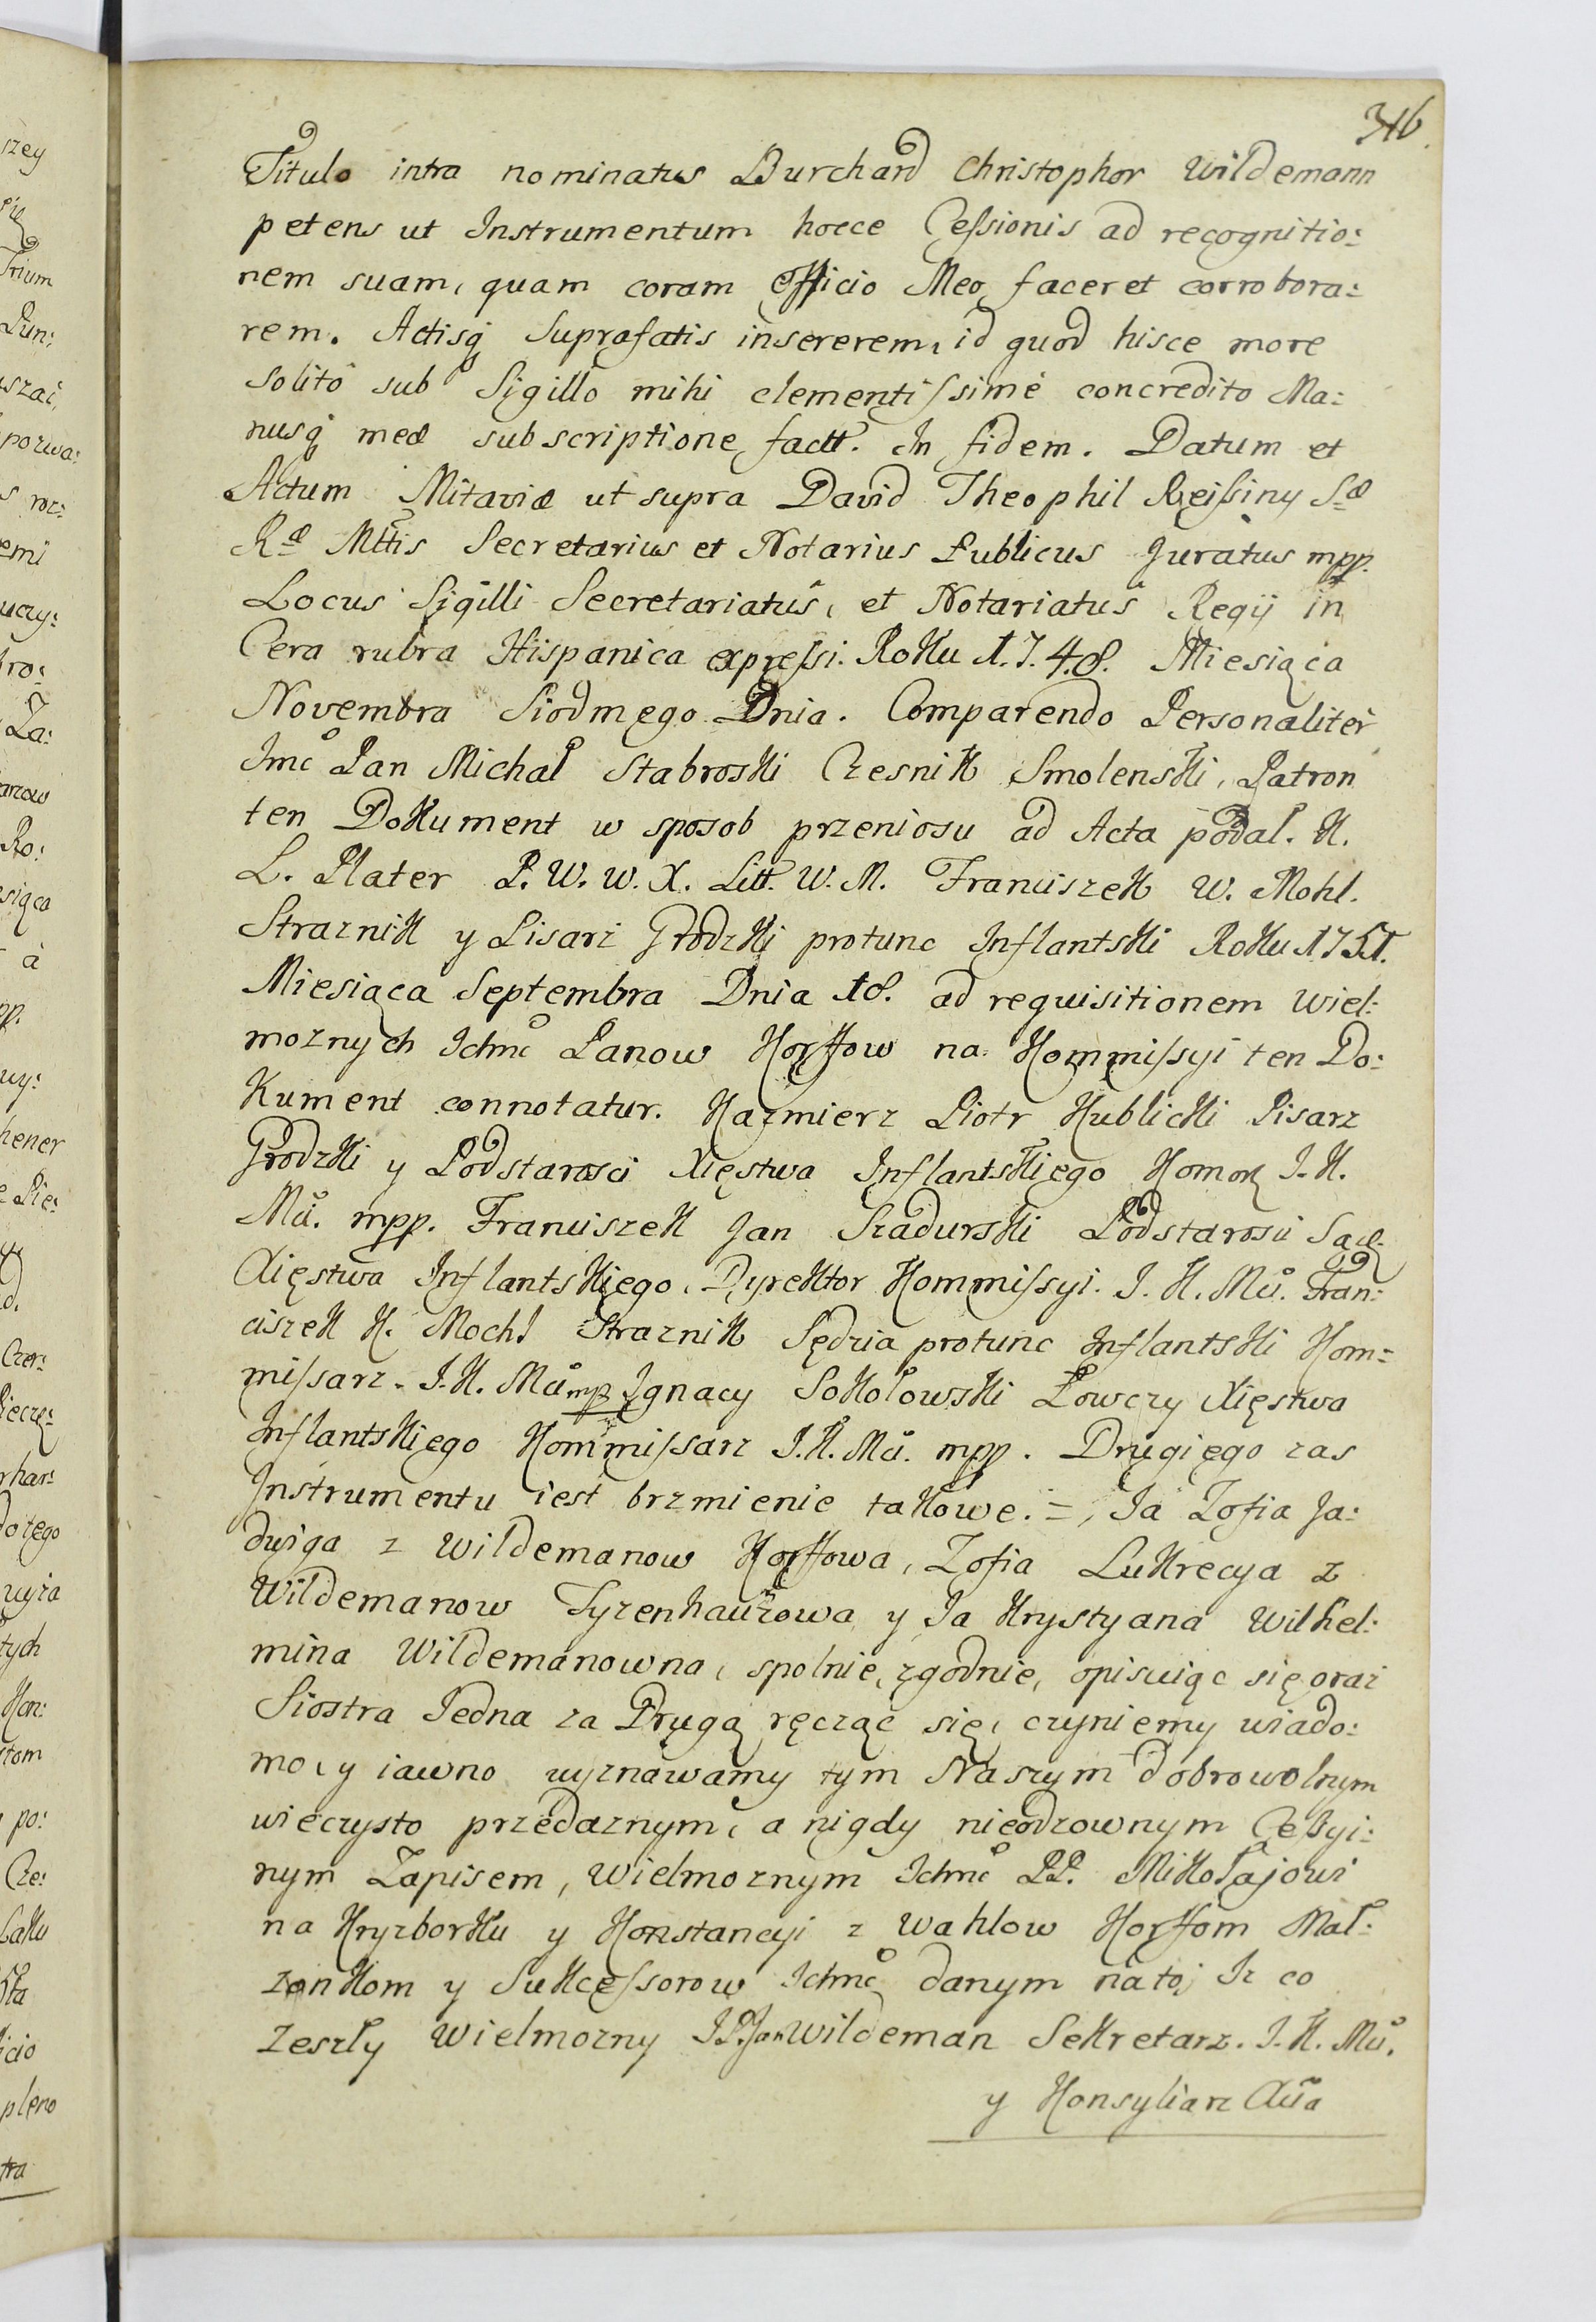 316.
Titulo intra nominatus Burchard Christophor Wildemann
petens ut Instrumentum hocce Cessionis ad recognitio:
nem suam, quam coram Officio Meo faceret corrobora:
rem. Actisq Suprafatis insererem, id quod hisce more
solito sub Sigillo mihi clementissimè concredito Ma:
nusq meæ subscriptione factt. In fidem. Datum et
Actum Mitaviæ ut supra David Theophil Reissiny Sæ
Ræ Mttis Secretarius et Notarius Publicus Juratus mpp.
Locus Sigilli Secretariatûs, et Notariatûs Regij in
Cera rubra Hispanica expressi. Roku 1.7.4.8. Miesiąca
Novembra Siodmego Dnia. Comparendo Personaliter
Jmć Pan Michał Stabroski Czesnik Smolenski, Patron
ten Dokument w sposob przeniosu ad Acta podał. K.
L. Plater P. W. w. X. Litt. W. M. Franciszek W. Mohl.
Straznik y Pisarz Grodzki protunc Inflantski Roku 1751.
Miesiąca Septembra Dnia 18. ad requisitionem Wiel:
moznych Ichmć Panow Korffow na Kommissyi ten Do:
kument connotatur. Kazmierz Piotr Kublicki Pisarz
Grodzki y Podstarosci Xięstwa Inflantskiego Komor J. K.
Mci. mpp. Franciszek Jan Szadurski Podstarosci Sąd.
Xięstwa Inflantskiego, Dyrektor Kommissyi. J. K. Mci. Fran:
ciszek K. Mochl Straznik Sędzia protunc Inflantski Kom=
missarz. J. K. Mci mp Ignacy Sokołowski Łowczy Xięstwa
Inflantskiego Kommissarz J. K. Mci. mpp. Drugiego zas
Instrumentu iest brzmienie takowe. =, Ia Zofia Ja:
dwiga z Wildemanow Korffowa, Zofia Lukrecya z
Wildemanow Tyzenhauzowa y Ia Krystyana Wilhel:
mina Wildemanowna, spolnie, zgodnie, opisuiąc się oraz
Siostra Iedna za Drugą ręcząc się, czyniemy wiado:
mo, y iawno wyznawamy tym Naszym dobrowolnym
wieczysto przedaznym, a nigdy nieodzownym Cessyi:
nym Zapisem, Wielmoznym Ichmć PP. Mikołajowi
na Kryzborku y Konstancyi z Wahlow Korffom Mał:
zonkom y Sukcessorow Ichmć danym na to, Iz co
zeszły Wielmozny J P. Jan Wildeman Sekretarz. J. K. Mci.
y Konsyliarz